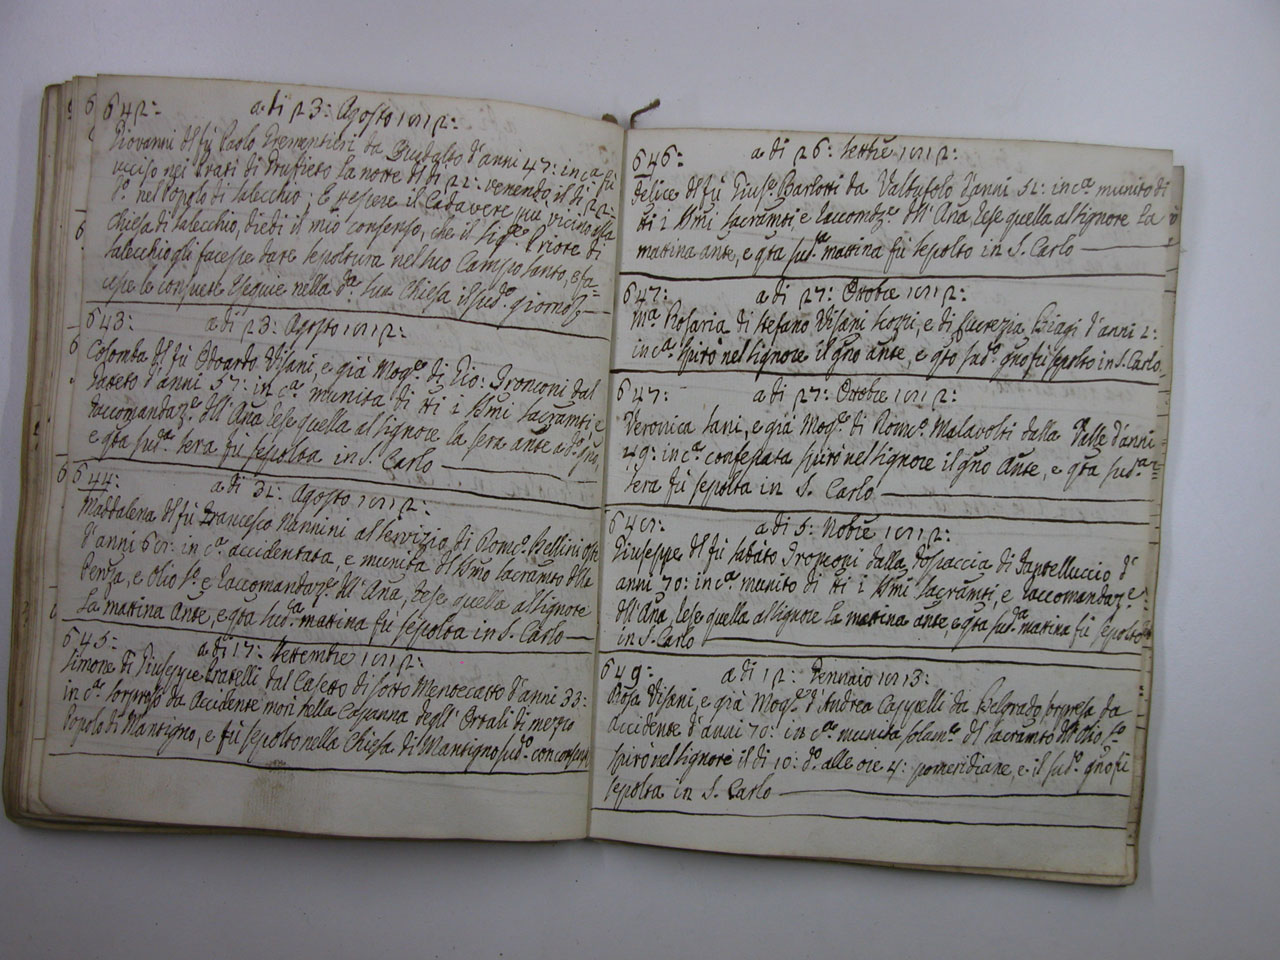 642: a di 23: Agosto 1812:
Giovanni del fù Paolo da d'anni 47: in ca: fù
ucciso nei Prati di la notte del dì 22: venendo il dì 23:
So. nel Popolo di Salecchio; E essere il Cadavere più vicino alla
Chiesa di Salecchio, diedi il mio consenso, che il Sigre. Priore di
Salecchio gli facesse dare sepoltura nel suo Campo Santo, e fa=
cesse le consuete Esequie nella da. sua Chiesa il sudo. giorno
643: a di 23: Agosto 1812:
Colomba del fù Edoardo Visani, e già Moge. di Gio: Tronconi dal
d'anni 57: in ca. munita di tti i SSmi Sacramti, e
Raccomandaze. dell'Aña rese quella al Signore la sera ante a do. gño,
e qta suda. sera fù sepolta in S. Carlo
644: a di 31: Agosto 1812:
Maddalena del fù Francesco Nannini al servizio di Domco. Bellini oste
d'anni 68: in ca. accidentata, e munita del SSmo Sacramto della
Penza, e Olio So. e Raccomandaze. dell'Aña, rese quella al Signore
la matina ante, e qta suda. matina fù sepolta in S. Carlo
645: a di 17: Settembre 1812:
Simone di Giuseppe Ravelli dal Casetto di sotto Montecatto d'anni 33:
in ca. sorpreso da Accidente morì nella Capanna degl'Ortali di mezzo
Popolo di Mantigno, e fù sepolto nella Chiesa di Mantigno sudo. con consenso
646: a di 26: Settre 1812:
Felice del fù Giuse. Barlotti da Valbufolo d'anni 52: in ca. munito di
tti i SSmi Sacramti, e Raccomdze. dell'Aña, rese quella al Signore la
matina ante, e qta suda. matina fù sepolto in S. Carlo
647: a di 27: Ottobre 1812:
Ma. Rosaria di Stefano Visani Sozzi, e di Lucrezia Biagi d'anni 2:
in ca. Spirò nel Signore il gño ante, e qto sudo. gño fù sepolto in S. Carlo
647: a di 27: Ottobre 1812:
Veronica Sani, e già Moge. di Domco. Malavolti dalla Valle d'anni
29: in ca. confessata spirò nel Signore il gño ante, e qta suda.
sera fù sepolta in S. Carlo
648: a di 5: Nobre 1812:
Giuseppe del fù Sabato Tronconi dalla Fossaccia di Fantelluccio d'
anni 70: in ca. munito di tti i SSmi Sacramti, e Raccomandaze.
dell'Aña, rese quella al Signore la matina ante, e qta suda. matina fù sepolto
in S. Carlo
649: a di 12: Gennaio 1813:
Rosa Visani, e già Moge. d'Andrea Cappelli da Belgrado sorpresa da
Accidente d'anni 70: in ca. munita solame. del Sacramto dell'Olio So.
spirò nel Signore il dì 10: do. alle ore 4: pomeridiane, e il sudo. gño fù
sepolta in S. Carlo